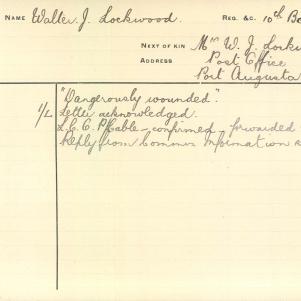 NAME Walter J. Lockwood. REG. &C. 10th
NEXT OF KIN Mrs W. J.
ADDRESS Post Office
Port Augusta
"Dangerously wounded".
1/2 Letter acknowledged.
Cable - confirmed - forwarded
Reply from Information